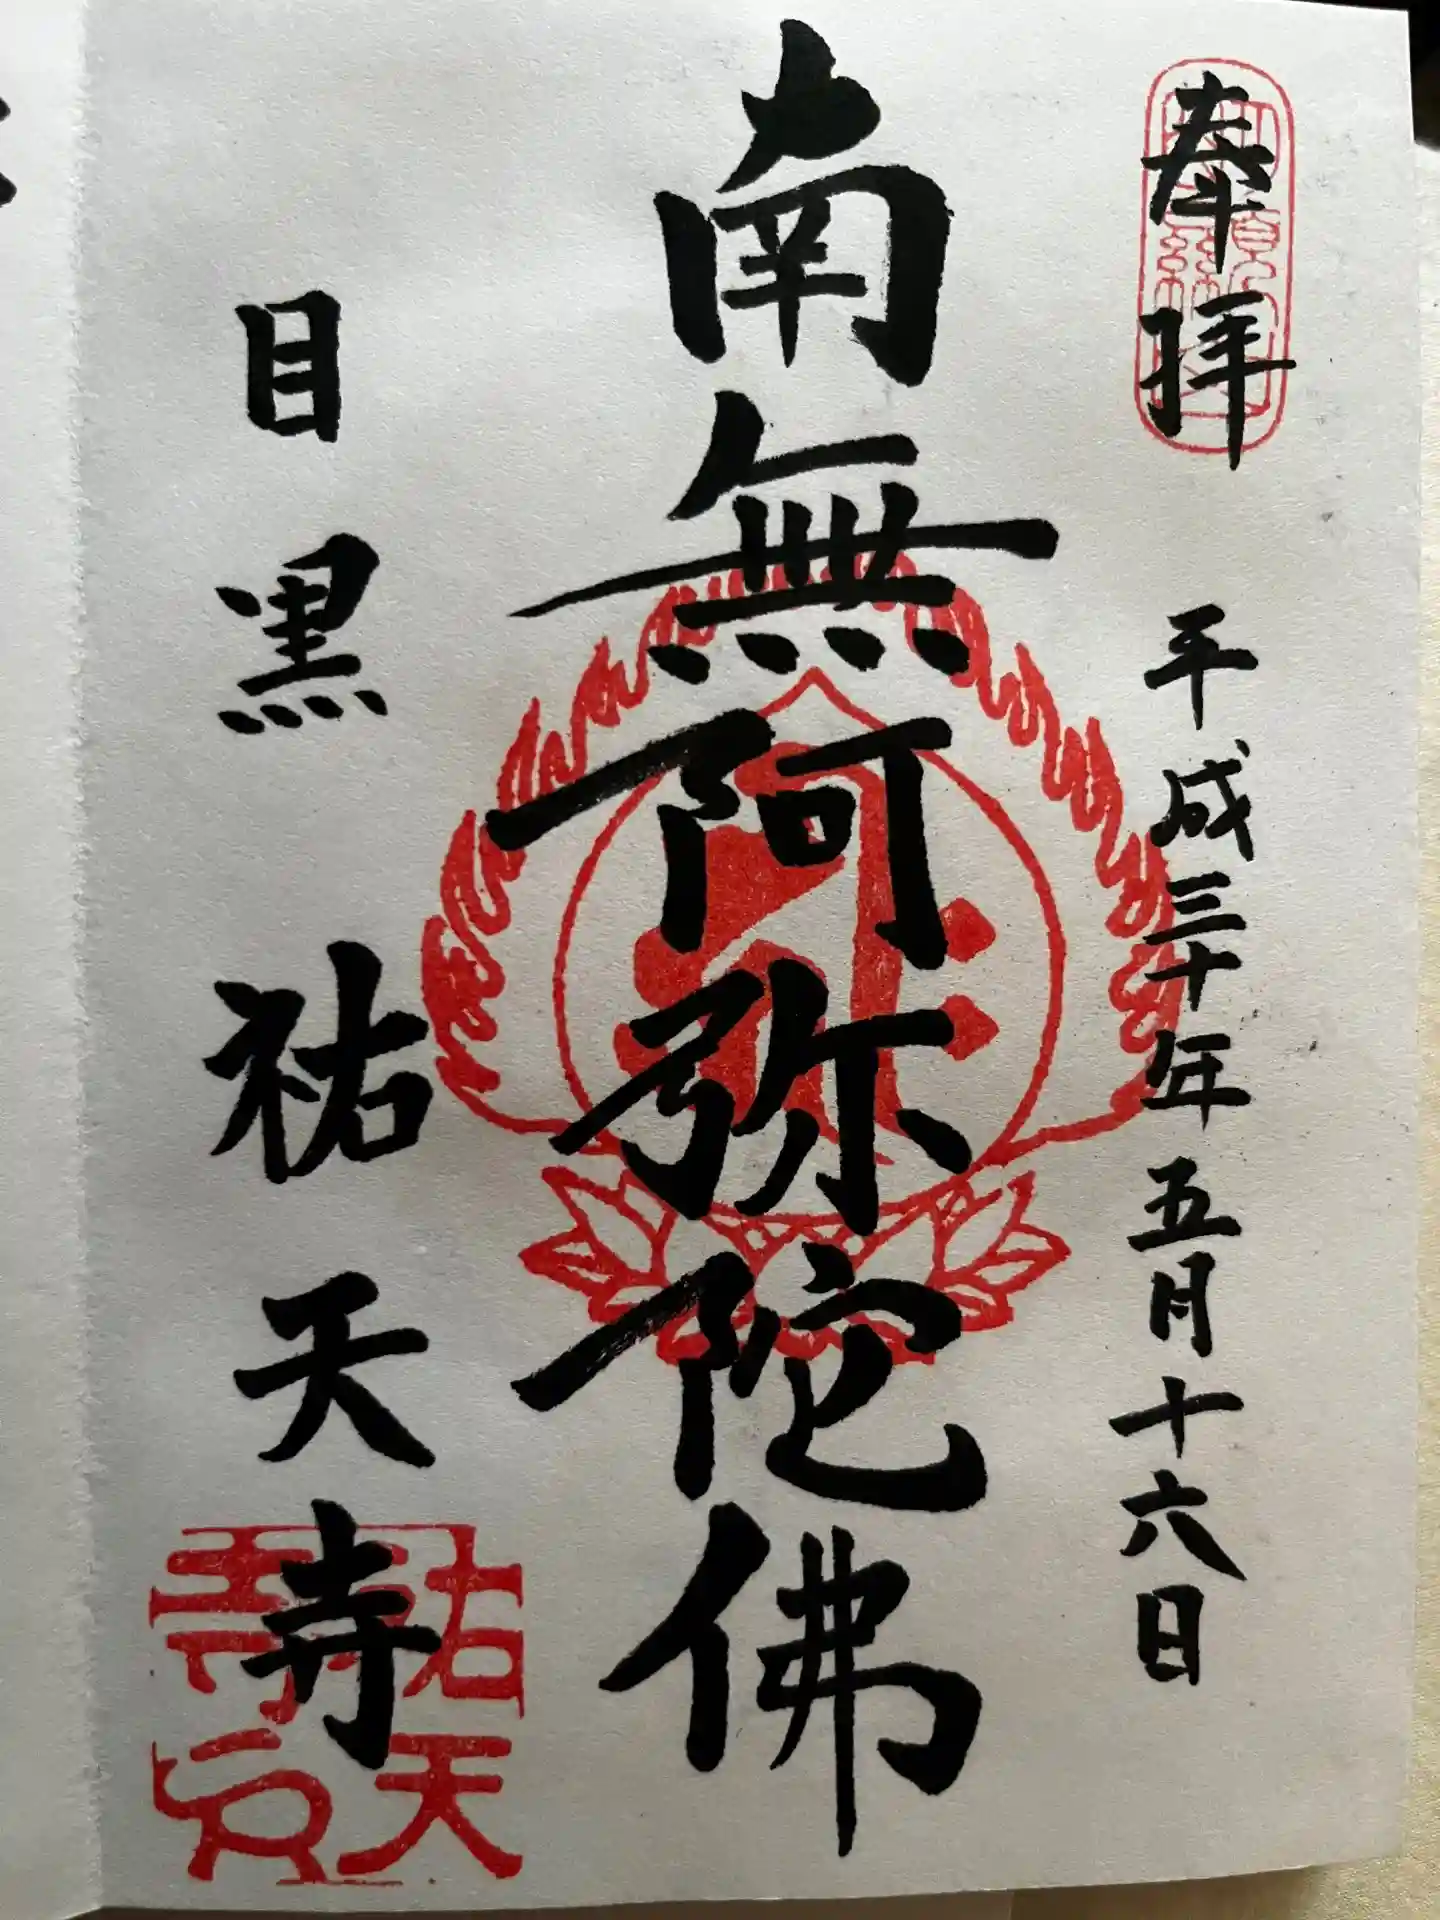 奉拝
平成三十年五月十六日
南無阿弥陀佛
目黒 祐天寺
祐天寺